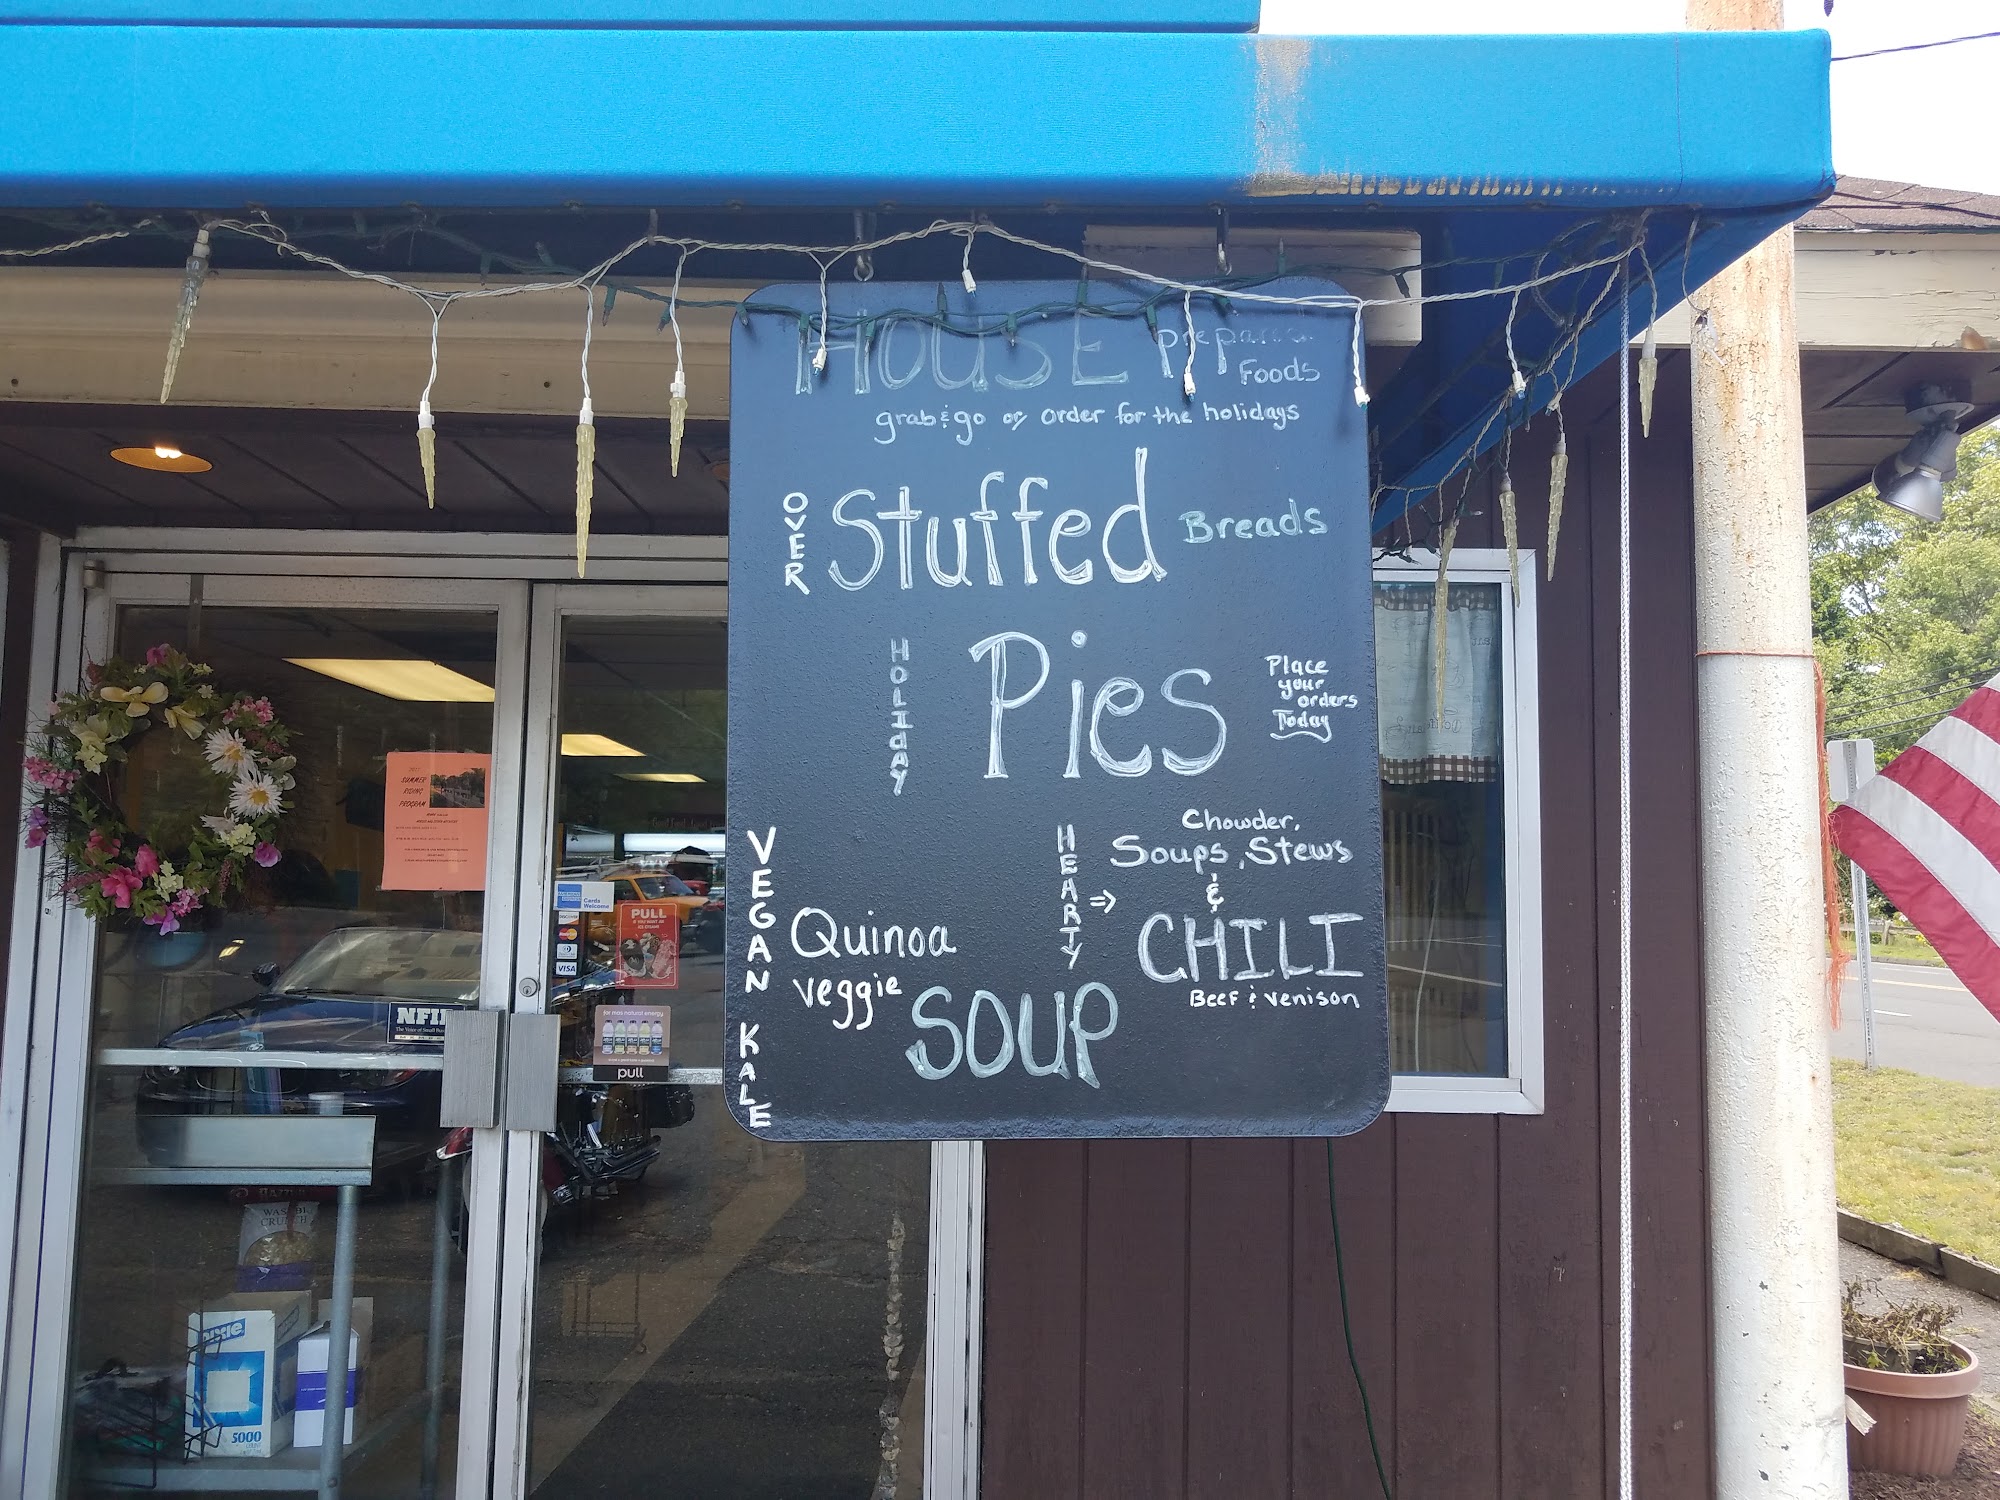 HOUSE prepared
Foods
grab & go or order for the holidays
OVER Stuffed Breads
HOLIDAY Pies
Place
your
orders
Today
VEGAN KALE
Quinoa
veggie
SOUP
HEARTY ⇒
Chowder,
Soups, Stews
&
CHILI
BEEF & venison
SUMMER
RIDING
PROGRAM
Cards
Welcome
VISA
PULL
NFIB
The Voice of Small
for mas natural energy
pull
WASABI
CRUNCH
DIXIE
5000